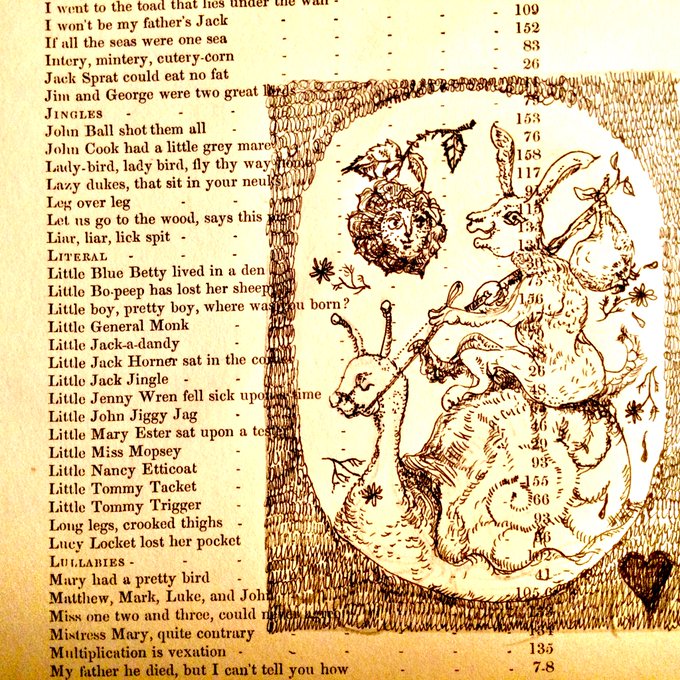 I went to the toad that lies under the wall - 109
I won't be my father's Jack - - - - 152
If all the seas were one sea - - - - 83
Intery, mintery, cutery-corn - - - - 26
Jack Sprat could eat no fat
Jim and George were two great lords 78
JINGLES - - - - 153
John Ball shot them all - 76
John Cook had a little grey mare 158
Lady-bird, lady bird, fly thy way home 117
Lazy dukes, that sit in your neuks
Leg over leg - -
Let us go to the wood, says this pig
Liar, liar, lick spit -
LITERAL - - -
Little Blue Betty lived in a den
Little Bo-peep has lost her sheep 75
Little boy, pretty boy, where was you born? 156
Little General Monk -
Little Jack-a-dandy -
Little Jack Horner sat in the corner 26
Little Jack Jingle - - 48
Little Jenny Wren fell sick upon a time
Little John Jiggy Jag -
Little Mary Ester sat upon a tester
Little Miss Mopsey - 29
Little Nancy Etticoat - 93
Little Tommy Tacket - 155
Little Tommy Trigger - 66
Long legs, crooked thighs -
Lucy Locket lost her pocket
LULLABIES - - -
Mary had a pretty bird - 41
Matthew, Mark, Luke, and John 105
Miss one two and three, could never agree
Mistress Mary, quite contrary - - - - 134
Multiplication is vexation - - - - - 135
My father he died, but I can't tell you how - - - 7-8